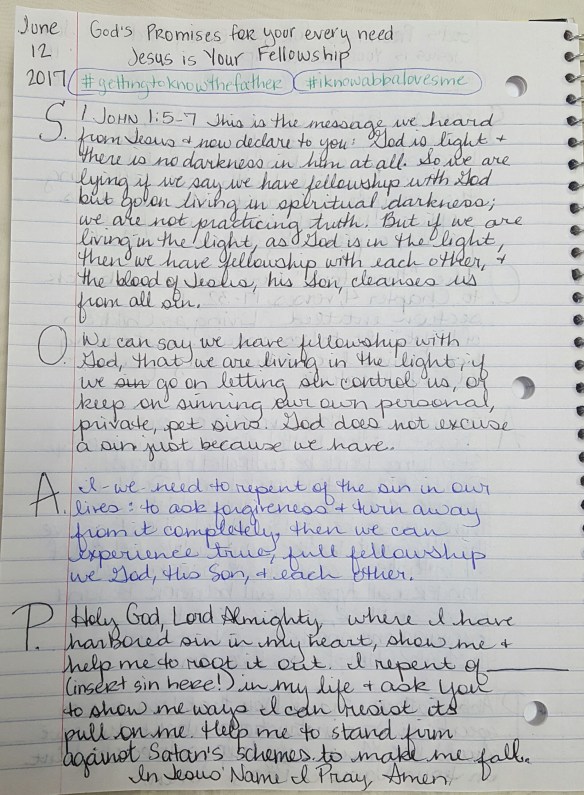 June 12 2017
God's Promises for your every need
Jesus is Your Fellowship
#gettingtoknowthefather #iknowabbalovesme
S. 1 John 1:5-7 This is the message we heard
from Jesus + now declare to you: God is light +
there is no darkness in him at all. So we are
lying if we say we have fellowship with God
but go on living in spiritual darkness;
we are not practicing truth. But if we are
living in the light, as God is in the light,
then we have fellowship with each other, +
the blood of Jesus, his Son, cleanses us
from all sin.
O. We can say we have fellowship with
God, that we are living in the light, if
we sin go on letting sin control us, or
keep on sinning our own personal,
private, pet sins. God does not excuse
a sin just because we have.
A. I-we-need to repent of the sin in our
lives: to ask forgiveness + turn away
from it completely, then we can
experience true, full fellowship
we God, His Son, + each other.
P. Holy God, Lord Almighty, where I have
harbored sin in my heart, show me +
help me to root it out. I repent of ________
(insert sin here!) in my life + ask You
to show me ways I can resist its
pull on me. Help me to stand firm
against Satan's schemes to make me fall.
In Jesus' Name I Pray, Amen.